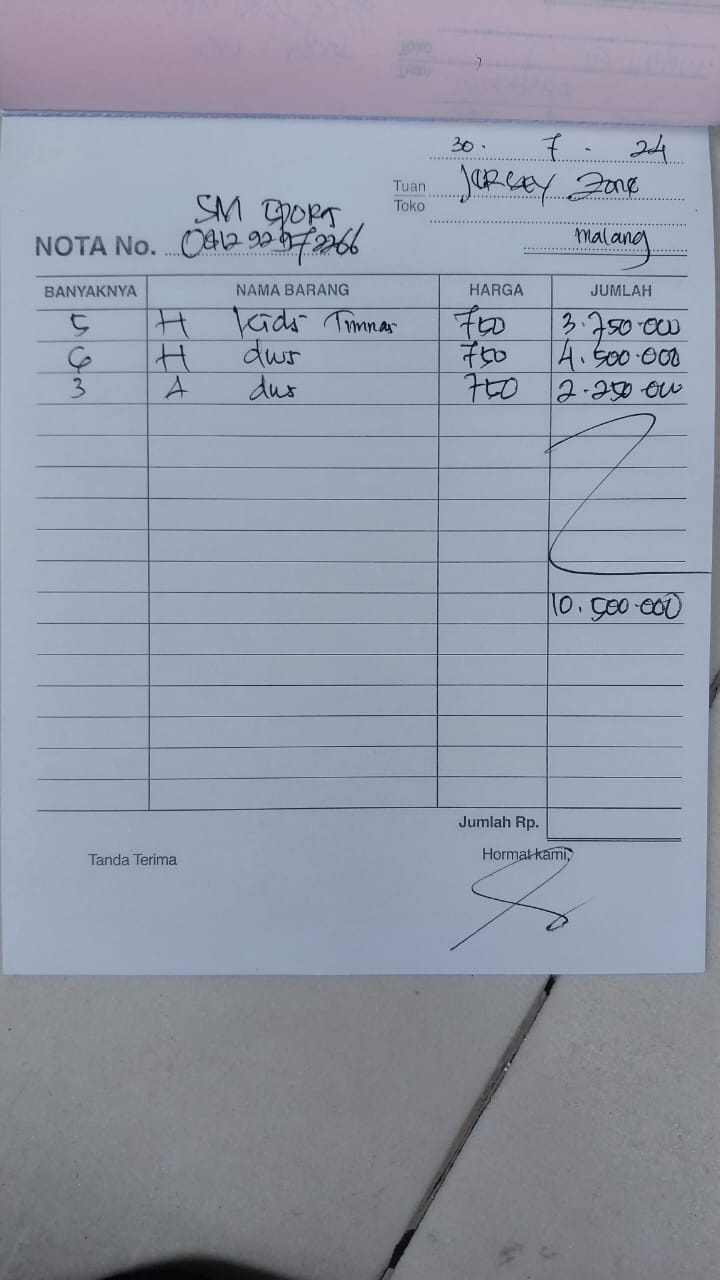 30 . 7 . 24
Tuan Toko JERSEY Zone
SM SPORT
NOTA No. 081292972266
malang
BANYAKNYA NAMA BARANG HARGA JUMLAH
5 H Kids Timnas 750 3.750.000
6 H dws 750 4.500.000
3 A dws 750 2.250.000
10.500.000
Jumlah Rp.
Tanda Terima Hormat kami,